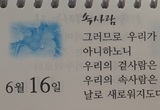 속사람
그러므로 우리가
아니하노니
우리의 겉사람은
우리의 속사람은
날로 새로워지도다
6월 16일